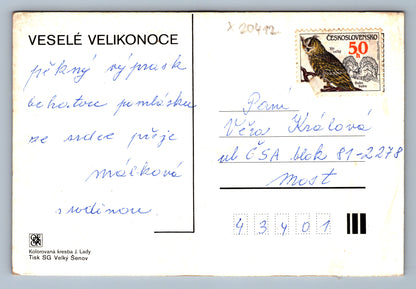 VESELÉ VELIKONOCE
pěkný výprask
bohatou pomlásku
ze srdce přeje
málková
s rodinou.
Kolorovaná kresba J. Lady
Tisk SG Velký Šenov
x 20412
ČESKOSLOVENSKO
50
Paní
Věra Králová
ul ČSA blok 81-2278
Most
43401